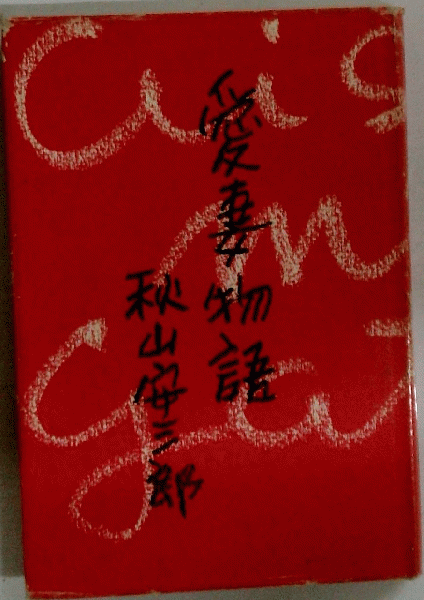 愛妻物語
秋山安三郎
ais
m
ga